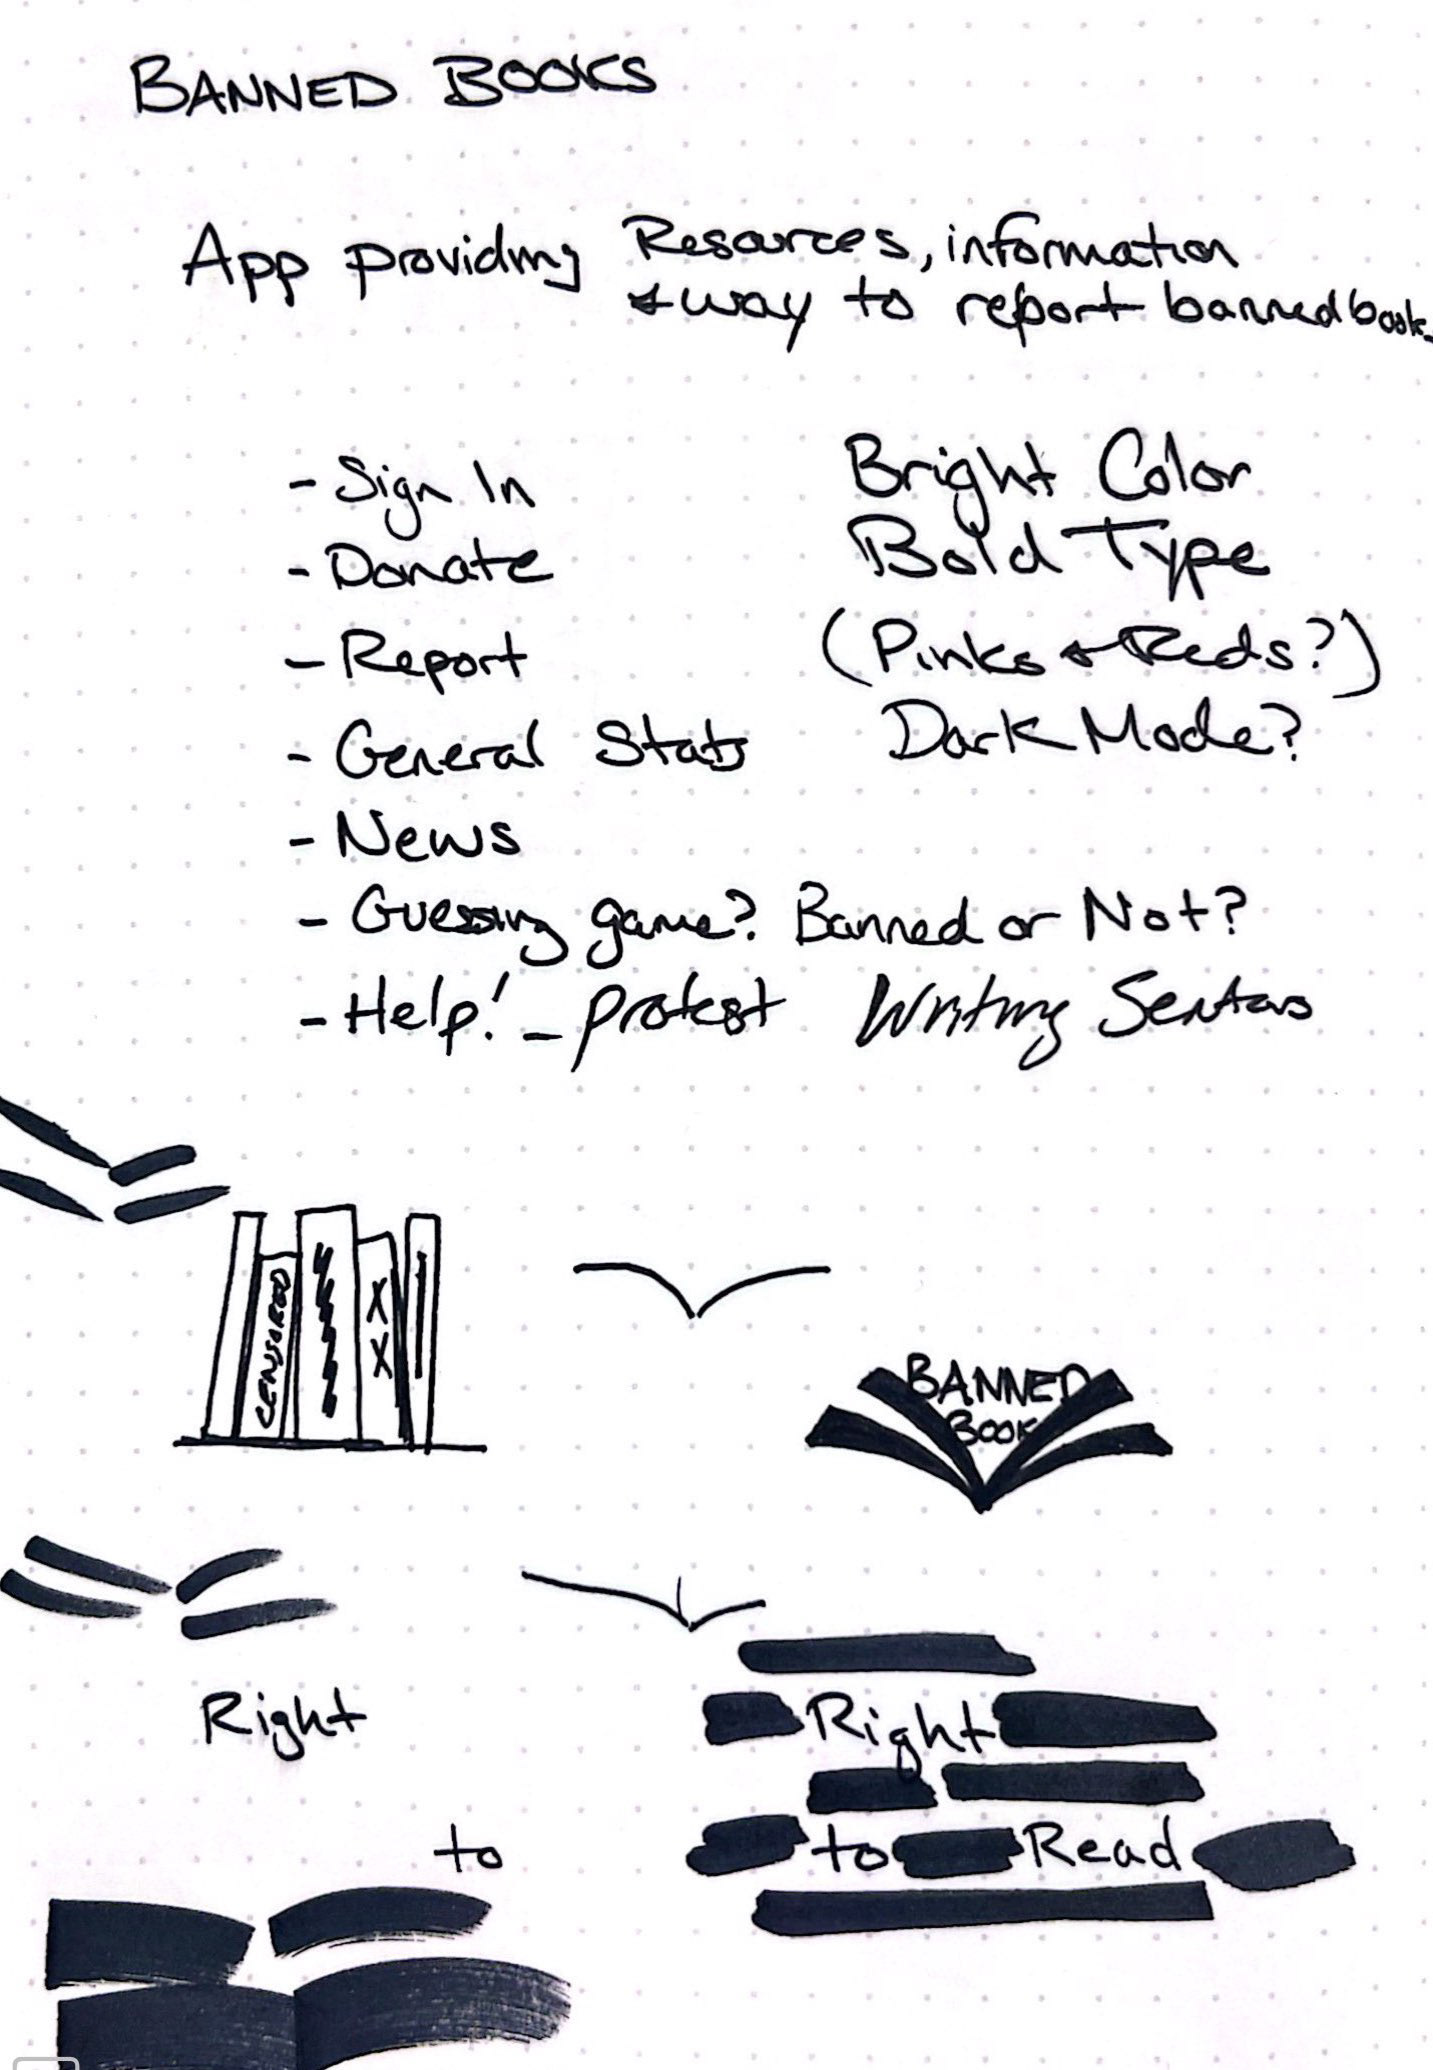 BANNED BOOKS
App providing Resources, information
& way to report banned book
- Sign In
- Donate
- Report
- General Stats
- News
- Guessing game? Banned or Not?
- Help! - protest Writing Senators
Bright Color
Bold Type
(Pinks & Reds?)
Dark Mode?
CENSORED
X
X
BANNED
BOOK
Right
to
Right
to Read